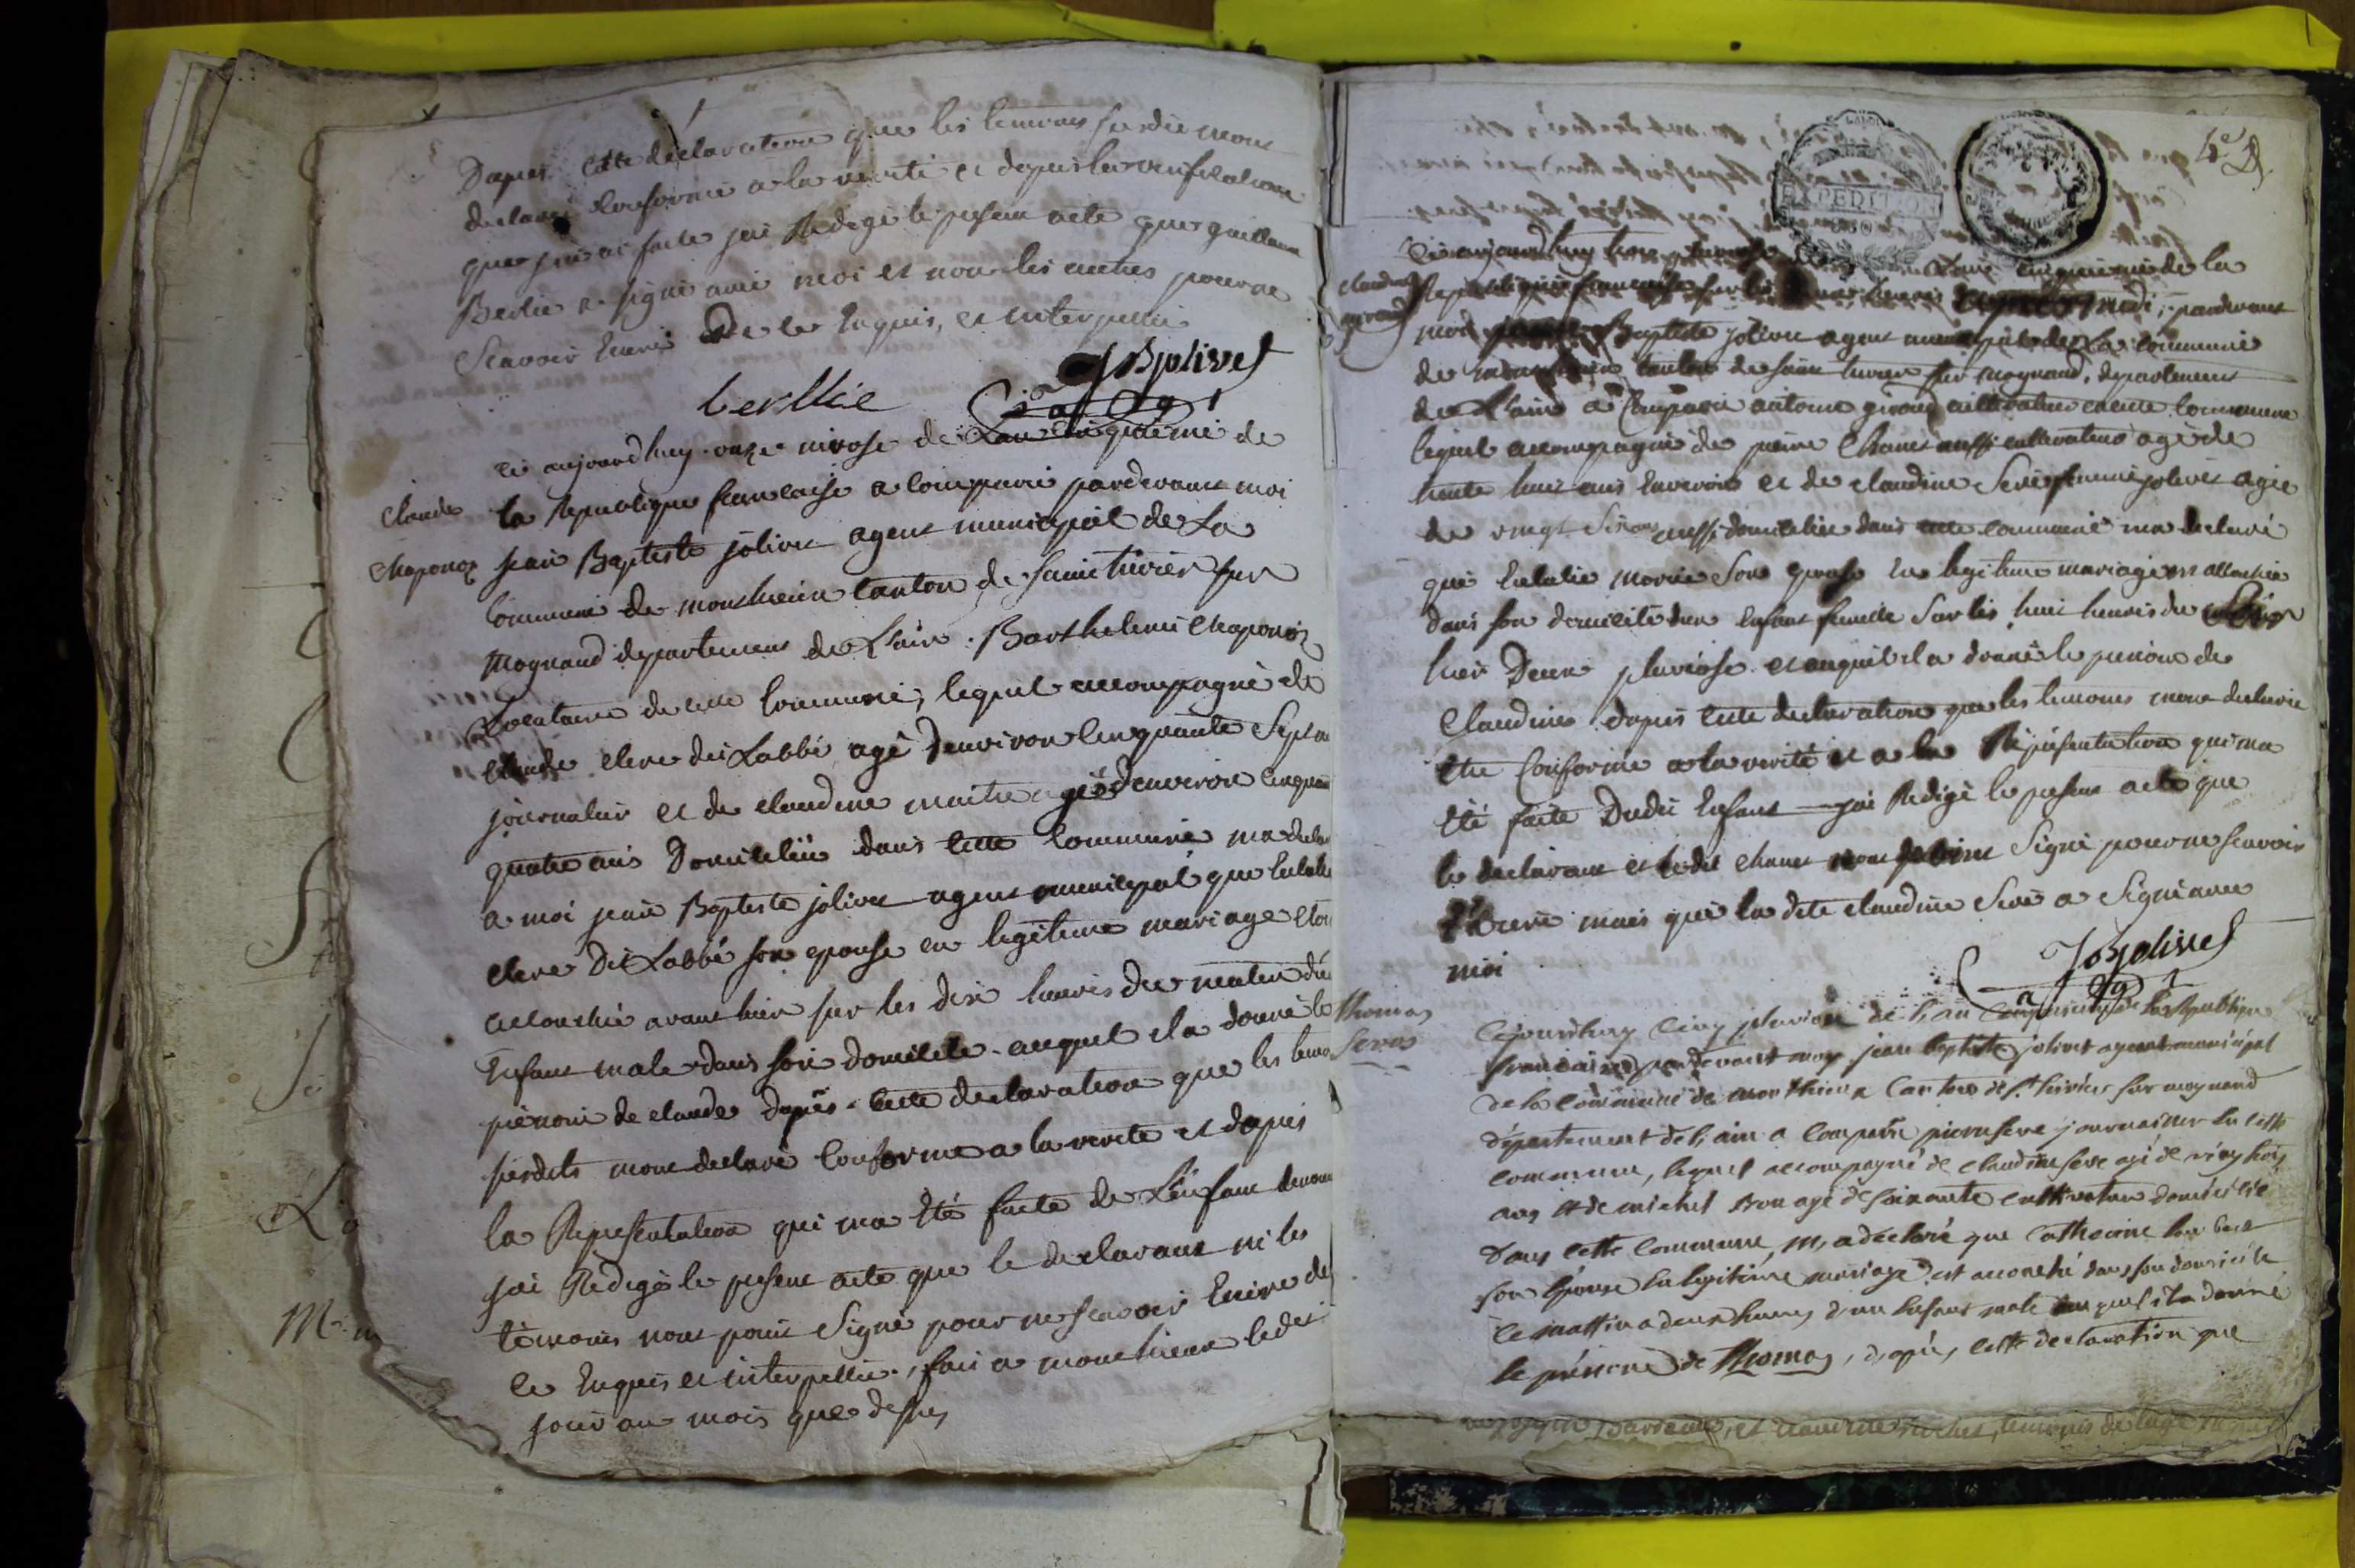 Dapres cette déclaration que les temoins susdit mont
declaré Conforme a la verité et depuis la verification
que jen ai faite jai Redigé le present acte que guillaume
Berlie a signé avec moi et non les autres pour ne
Scavoir Ecrire de ce Enquis, et interpellé
berllie JBjolivet
agt
Claude
Chaponoz
Ce aujourdhuy onze nivose de Lan cinquieme de
la Republique francaise a comparu pardevant moi
jean Baptiste jolivet agent municipal de La
Commune de monthieux canton de saint trivier sur
Mognand departement de Lain. Barthelemi Chaponoz
Locataire de cette Commune, lequel accompagné de
Claude clerc dit Labbé agé denviron cinquante Sept an
journalier et de claudine maitre agée denviron cinquan
quatre ans Domiciliés dans cette Commune ma decla
a moi jean Baptiste jolivet agent municipal que Eulalie
clerc Dit Labbé son epouse en legitime mariage Etoit
accouchée avant hier sur les dix heures du matin du
Enfant male dans son domicile auquel il a donné le
prenom de claude dapres cette declaration que les temo
susdits mont declaré Conforme a la verité et dapres
la Representation qui ma Eté faite de LEnfant denom
jai Redigé le present acte que le declarant ni les
temoins nont point Signé pour ne scavoir Ecrire de
ce Enquis et interpellé, fait a monthieux ledit
jour an mois que dessus
4e
EXPEDITION
Claudine
giroud
Ce aujourdhuy trois pluviose Lan cinquieme de la
Republique francaise sur les heures midi, pardevant
moi Baptiste jolivet agent municipal de La Commune
de canton de saint trivier sur mognand, departement
de Lain a Comparu antoine giroud cultivateur en cette Commune
lequel accompagné de pierre Chanet aussi cultivateur agé de
trente huit ans Environ et de claudine Seve femme jolivet agée
de vingt Six ans aussi domiciliée dans cette commune ma declaré
que Eulalie morie Son epouse En legitime mariage est accouchée
dans son domicile dun Enfant femelle Sur les huit heures du
hier Deux pluviose et auquel il a donné le prenom de
Claudine dapres cette declaration que les temoins mont declaré
Etre Conforme a la verité et a la Representation qui ma
Eté faite Dudit Enfant jai Redigé le present acte que
le declarant et ledit Chanet nont point Signé pour ne scavoir
Ecrire mais que la dite claudine Seve a Signé avec
moi
JBjolivet
agt
thomas
Seve
Cejourdhuy cinq pluviose de l'an cinquieme de la Republique
francaise pardevant moy jean baptiste jolivet agent municipal
de la commune de monthieux Canton de St. trivier sur mognand
département de l'ain a comparu pierre seve journailler en cette
commune, lequel accompagné de claudine seve agé de vingt six
ans et de michel Bon agé de soixante cultivateur domicilié
dans cette commune, m'a déclaré que Catherine
son épouse En legitime mariage est accouché dans son domicile
ce mattin a deux heures d'un Enfant male auquel il a donné
le prénom de Thomas, dapres cette declaration que